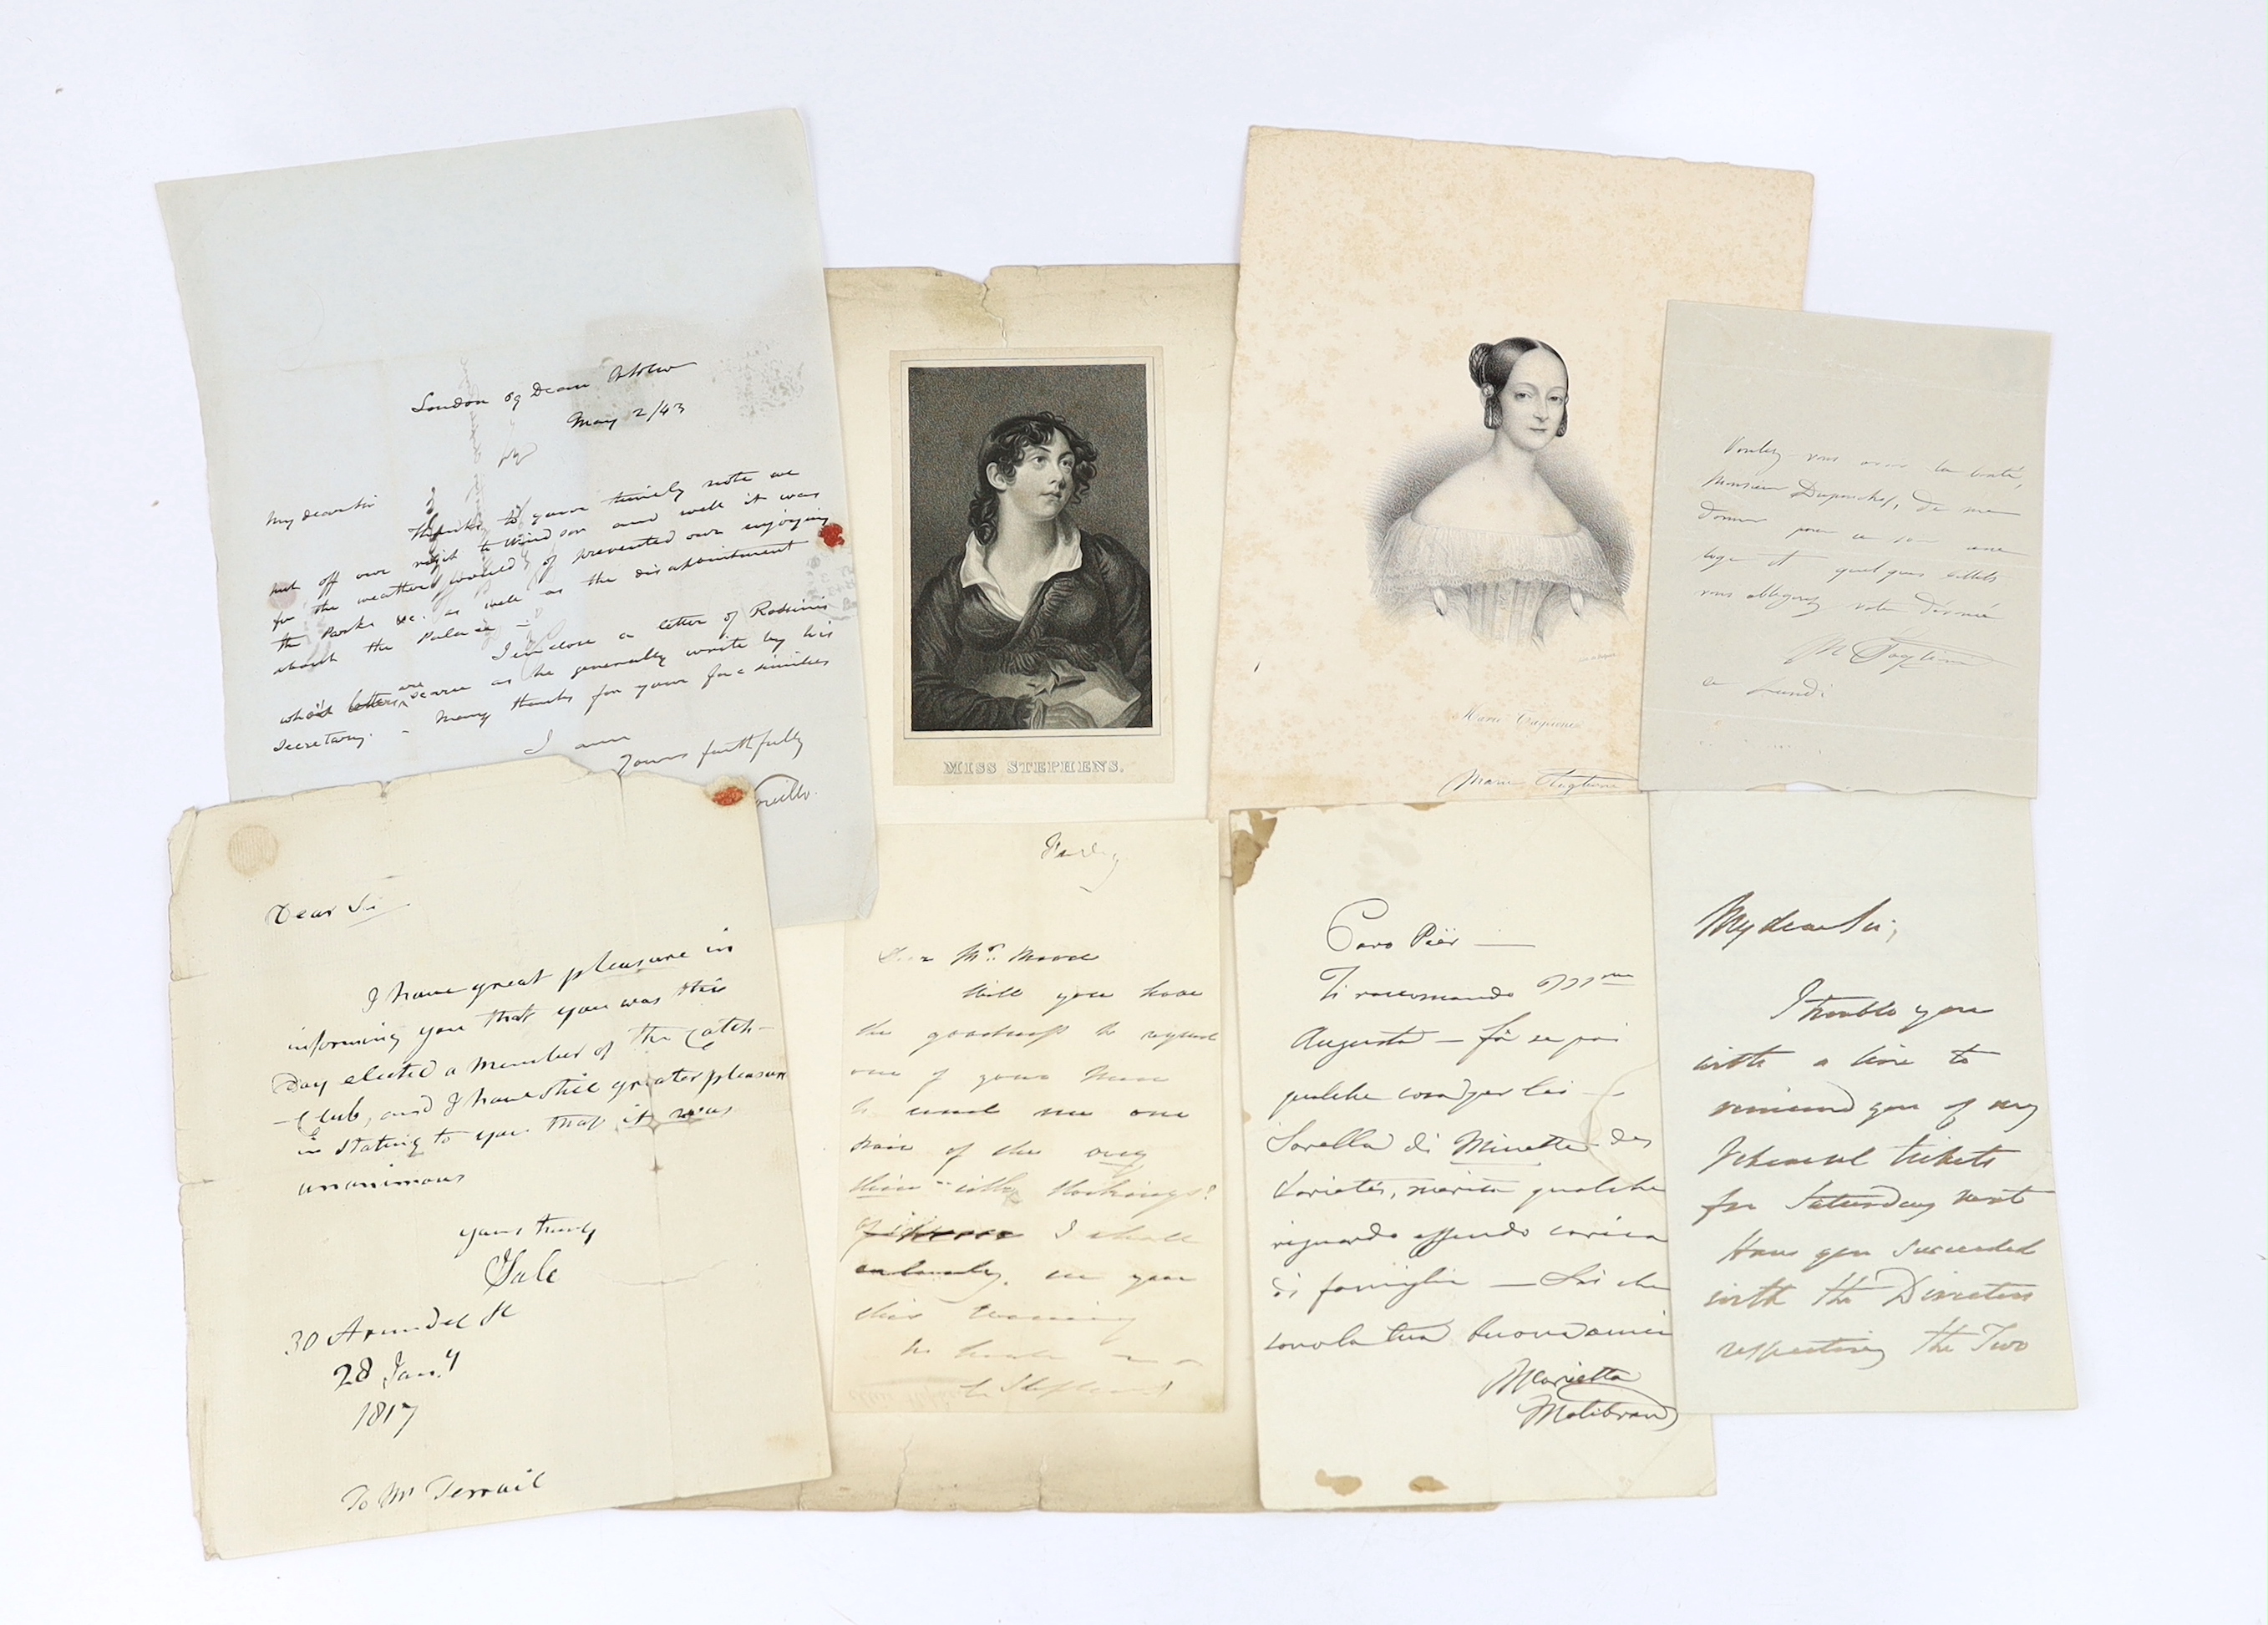 London 69 Dean
May 2/43
My dear Sir
Thanks to your timely note we
put off our visit to Windsor and well it was
for the weather would of prevented our enjoying
the Parks &c. as well as the disapointment
about the Palace –
I enclose a letter of Rossinis
letters are scarce as he generally write by his
Secretary. – Many thanks for your facsimiles
I am
Yours faithfully
MISS STEPHENS.
Marie Taglioni
Marie Taglioni
Voulez-vous avoir la bonté,
Monsieur Duponchel, de me
donner pour ce soir une
loge et quelques billets
vous obligerez votre dévouée
M Taglioni
ce Lundi
Dear Sir
I have great pleasure in
informing you that you was this
Day elected a Member of the Catch-
-Club, and I have still greater pleasure
in stating to you that it was
unanimous
yours truly
JSale
30 Arundel St
28 Jany
1817
To Mr Terrail
Dear Mr.
Will you have
the goodness to request
one of your
to send me one
pair of the very
thin stockings?
I shall
see you
this evening
Caro Pier —
Ti raccomando Mme
Augusta — fa se poi
qualche cosa per lei —
Sorella di Minette des
Varietés, merita qualche
riguardo essendo carica
di famiglia — Sai che
sono la tua buona amica
Marietta
Malibran
My dear Sir,
I trouble you
with a line to
remind you of my
Rehearsal tickets
for Saturday next
Have you succeeded
with the Directors
respecting the Two